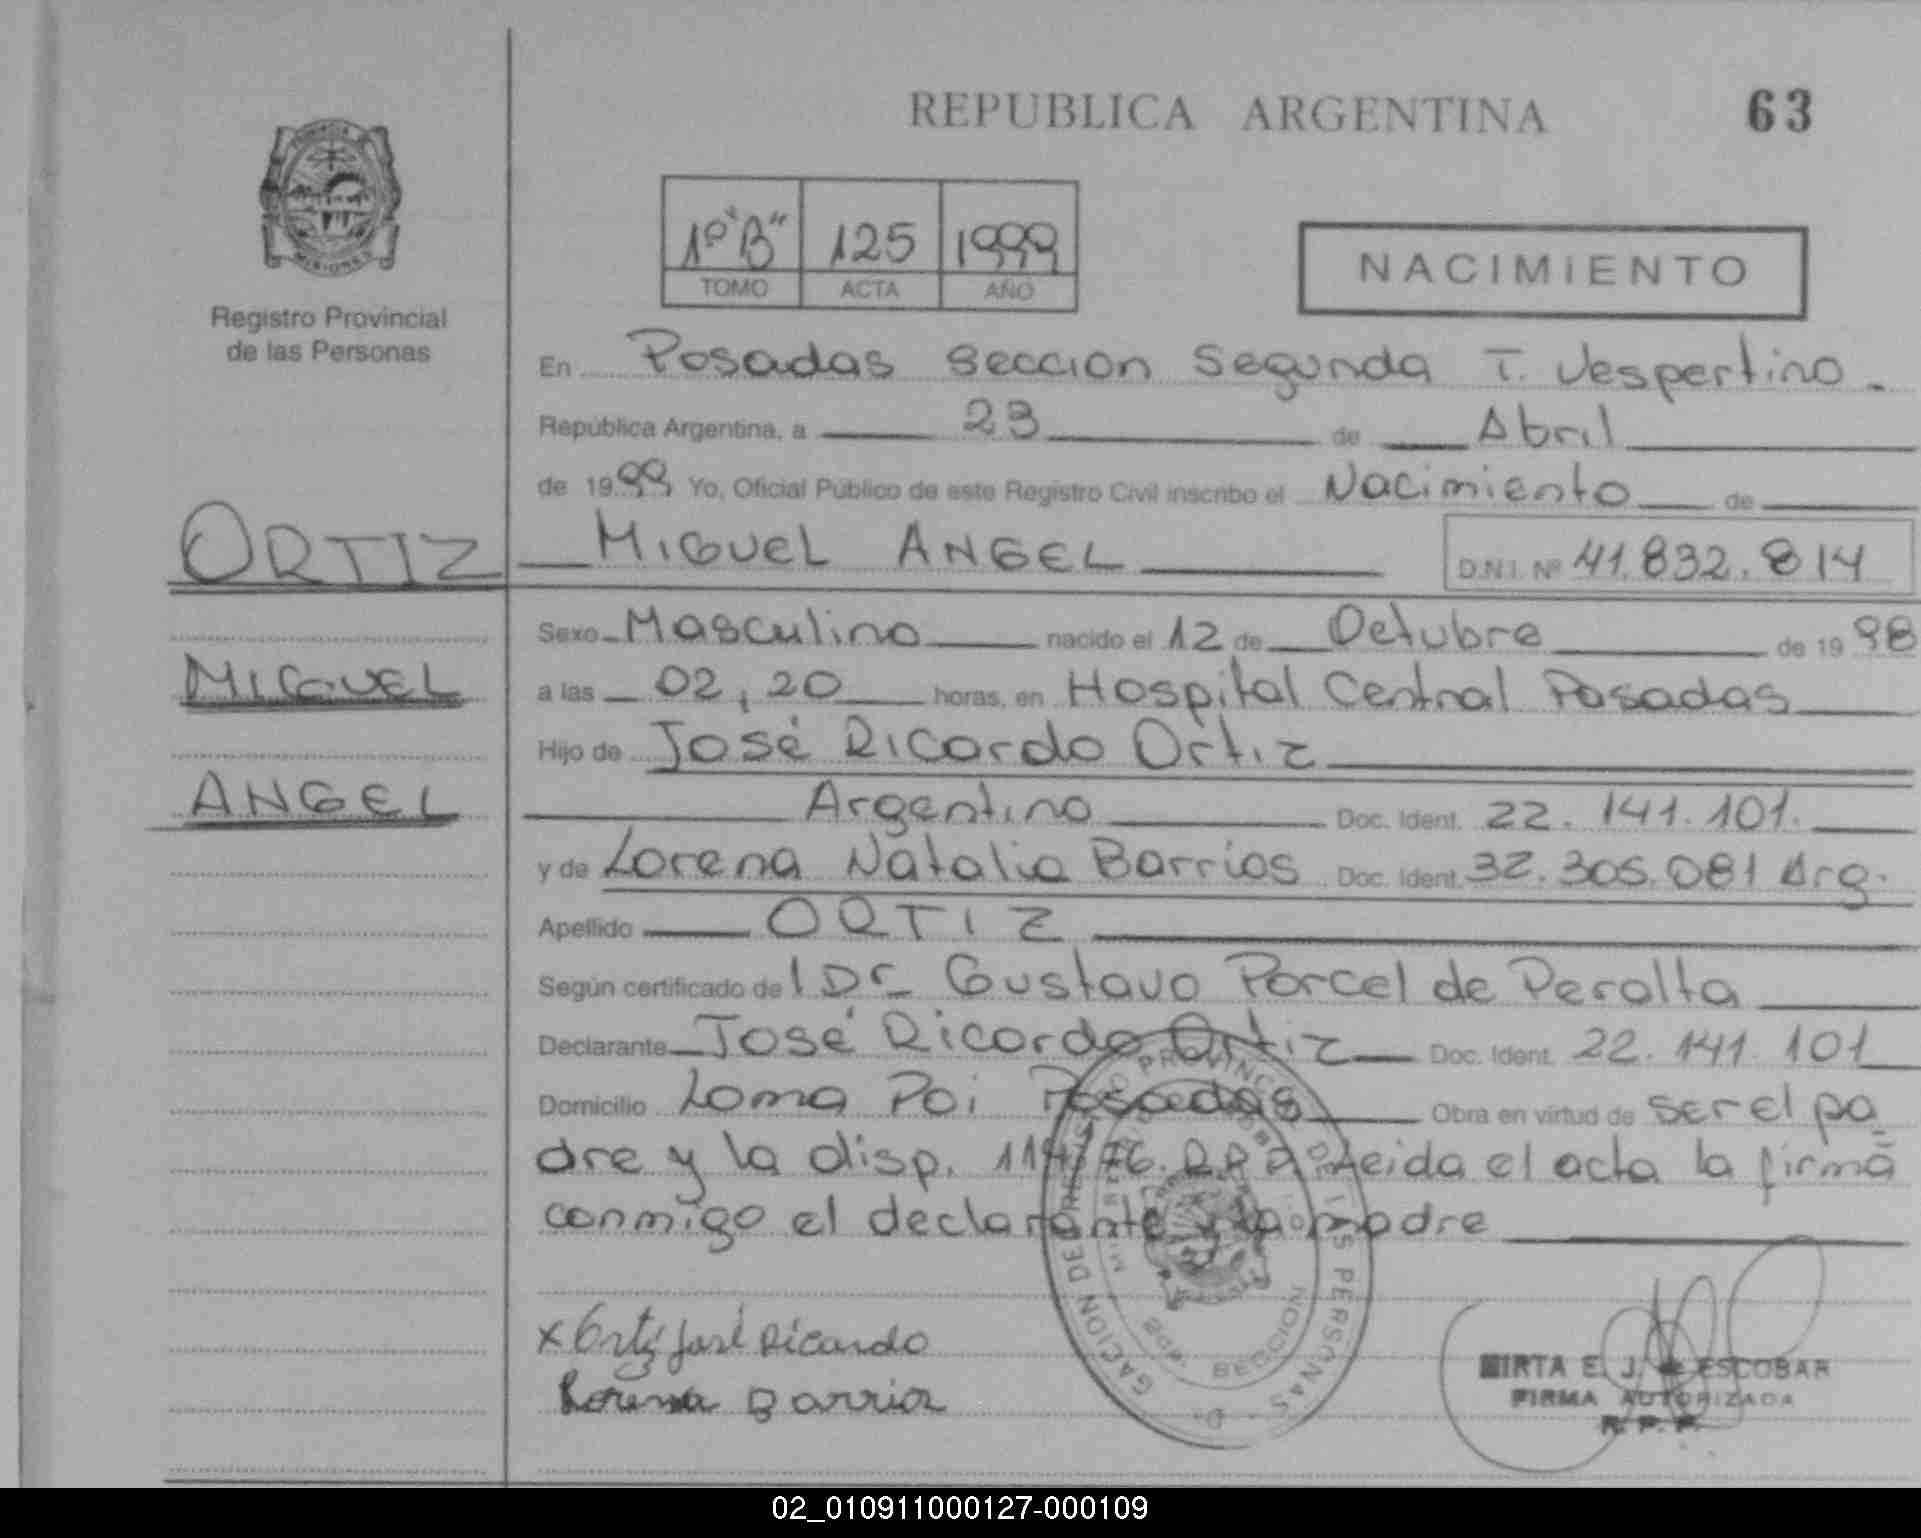 REPUBLICA ARGENTINA 63
PROVINCIA MISIONES
Registro Provincial
de las Personas
1º"B" 125 1999
TOMO ACTA AÑO
NACIMIENTO
En Posadas Seccion Segunda T. Vespertino.
República Argentina, a 23 de Abril
de 1999 Yo, Oficial Público de este Registro Civil inscribo el Nacimiento de
ORTIZ MIGUEL ANGEL D.N.I. Nº 41.832.814
Sexo Masculino nacido el 12 de Octubre de 1998
MIGUEL
a las 02,20 horas, en Hospital Central Posadas
Hijo de José Ricardo Ortiz
ANGEL
Argentino Doc. Ident. 22.141.101.
y de Lorena Natalia Barrios Doc. Ident. 32.305.081 Arg.
Apellido ORTIZ
Según certificado de l Dr Gustavo Porcel de Peralta
Declarante José Ricardo Ortiz Doc. Ident. 22.141.101
Domicilio Loma Poi Posadas Obra en virtud de ser el pa_
dre y la disp. 114/76. R.P.P. Leida el acta la firma
conmigo el declarante y la madre
x Ortiz José Ricardo
Lorena Barrios
DE LAS PERSONAS
SECCION
MIRTA E. J. de ESCOBAR
FIRMA AUTORIZADA
R. P. P.
02_010911000127-000109